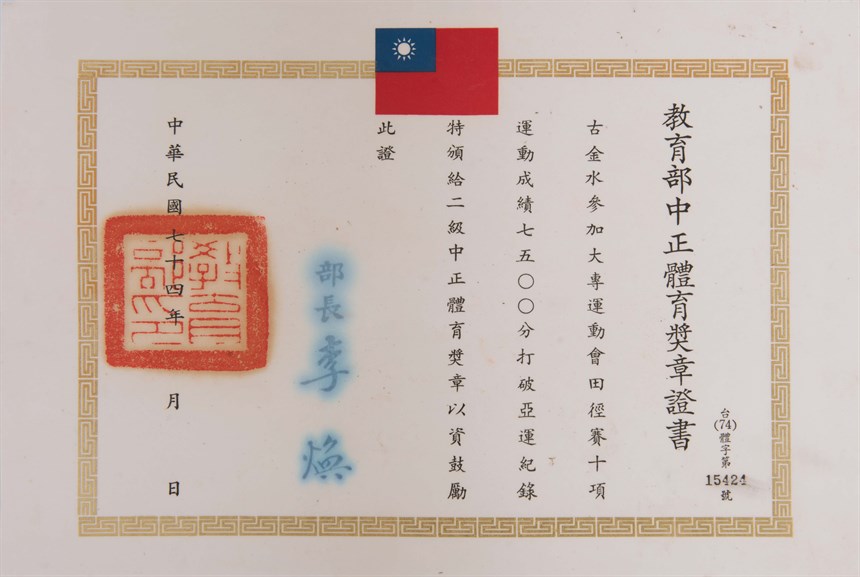 教育部中正體育獎章證書
台(74)體字第15424號
古金水參加大專運動會田徑賽十項
運動成績七五〇〇分打破亞運紀錄
特頒給二級中正體育獎章以資鼓勵
此證
部長李煥
中華民國七十四年 月 日
教育部印